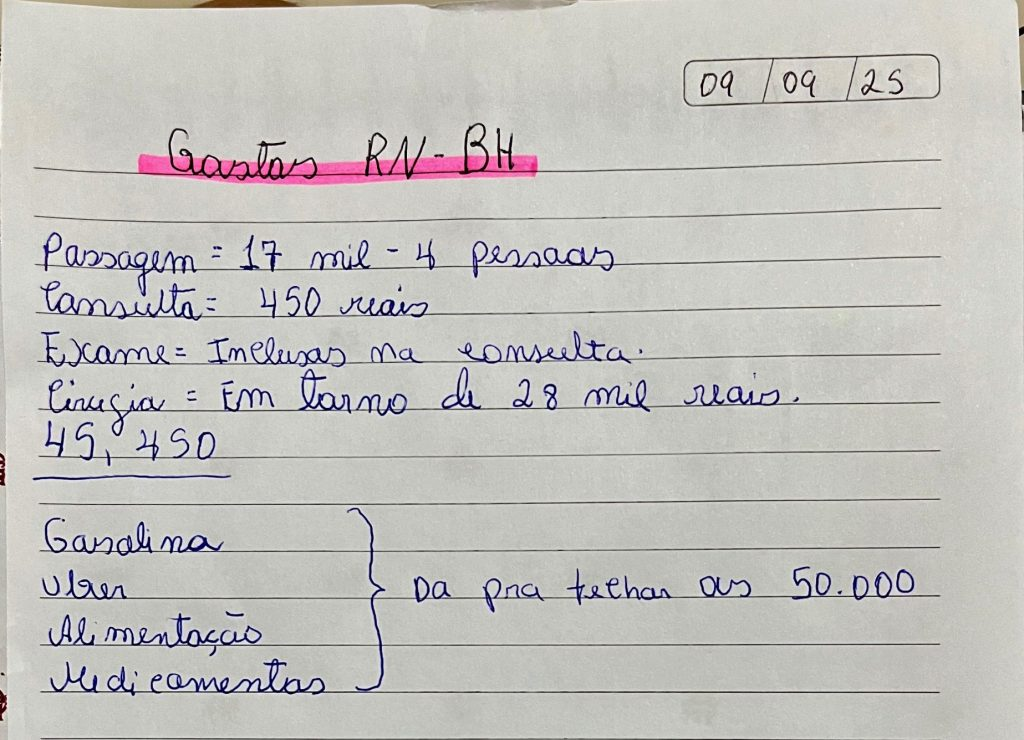 09/09/25
Gastos RN-BH
Passagem = 17 mil - 4 pessoas
Consulta = 450 reais
Exame = Inclusos na consulta.
Cirugia = Em torno de 28 mil reais.
45,450
Gasolina
Uber
Alimentação
Medicamentos
Da pra fechar os 50.000